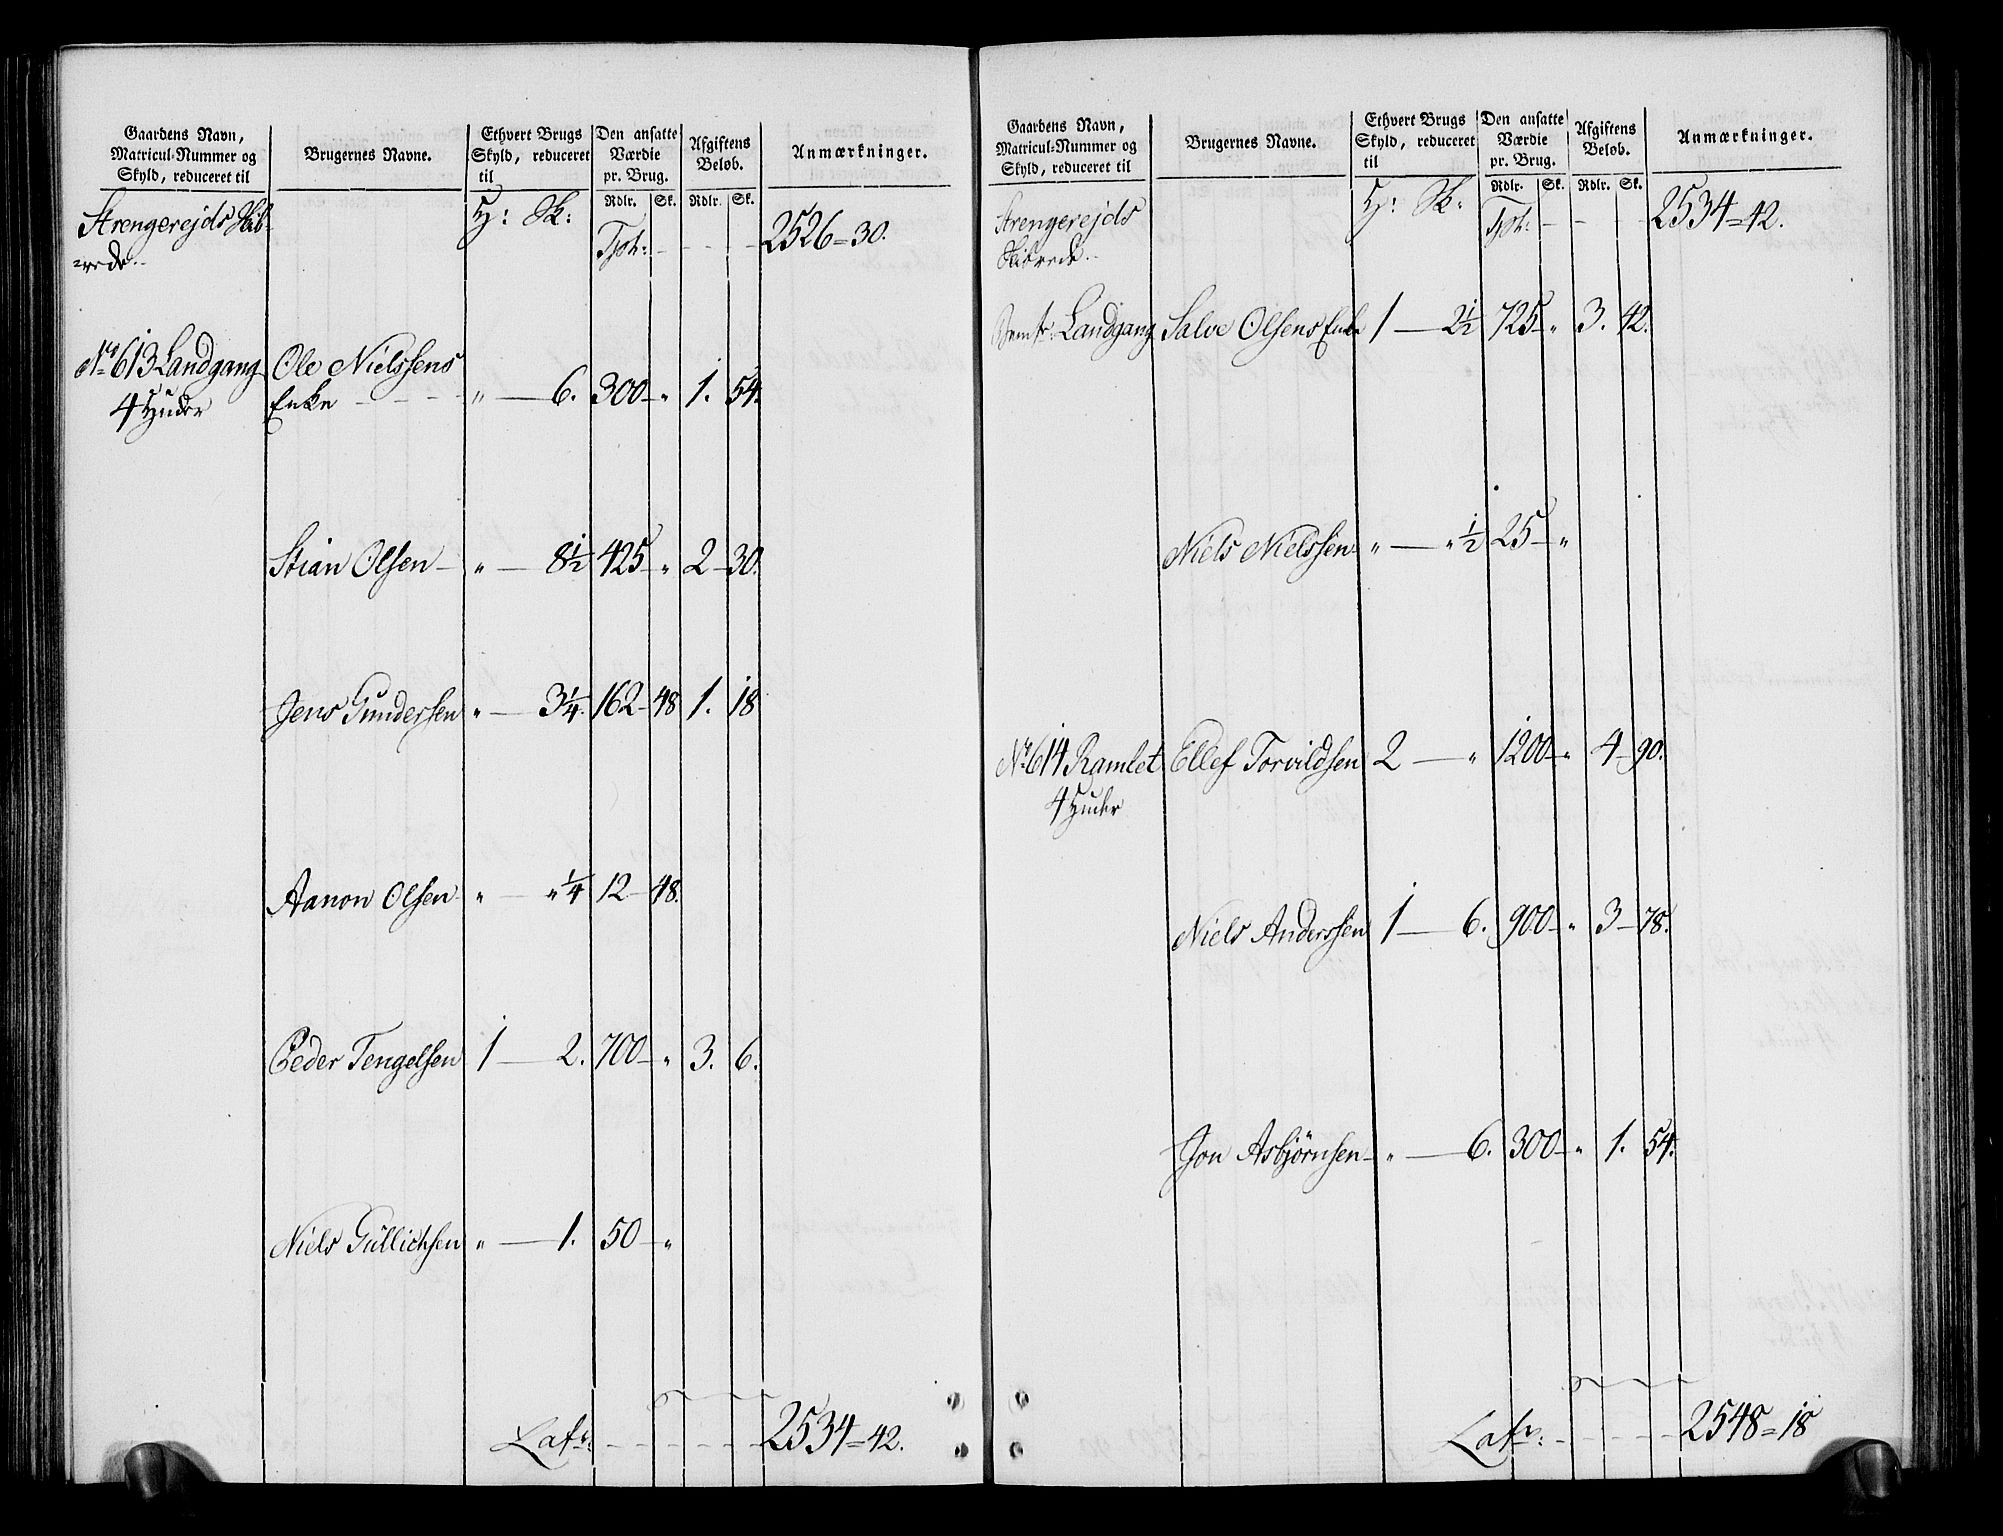 Gaardens Navn, Matricul-Nummer og Skyld, reduceret til | Brugernes Navne. | Ethvert Brugs Skyld, reduceret til | Den ansatte Værdie pr. Brug. | Afgiftens Beløb. | Anmærkninger.
Rdlr. Sk. Rdlr. Sk.
Strengerejds Skib- H: Sk: Tpt: - - - - 2526=30.
=rede.
No 613 Landgang Ole Nielssens
4 Huder Enke - - - - „ — 6. 300 — „ 1. 54.
Stian Olsen — „ — 8½ 425 — „ 2 — 30.
Jens Gundersen „ — 3¼. 162 — 48 1. 18
Aanon Olsen — „ — „ ¼ 12 — 48.
Peder Tengelsen 1 — 2. 700 — „ 3. 6.
Niels Gullichsen „ — 1. 50 — „
Latr: - - - - - - 2534=42.
Gaardens Navn, Matricul-Nummer og Skyld, reduceret til | Brugernes Navne. | Ethvert Brugs Skyld, reduceret til | Den ansatte Værdie pr. Brug. | Afgiftens Beløb. | Anmærkninger.
Rdlr. Sk. Rdlr. Sk.
Strengerejds H: Sk: Tpt: - - - 2534=42.
Skibrede..
Landgang Salve Olsens Enke 1 — 2½ 725 — „ 3. 42.
Niels Nielssen — „ — „ ½ 25 — „
No 614 Ramlet Ellef Torvildsen 2 — „ 1200 — „ 4 — 90.
4 Huder
Niels Anderssen 1 — 6. 900 — „ 3 — 78.
Jon Asbjørnsen — „ — 6. 300 — „ 1. 54.
Latr: - - - - - - 2548=18